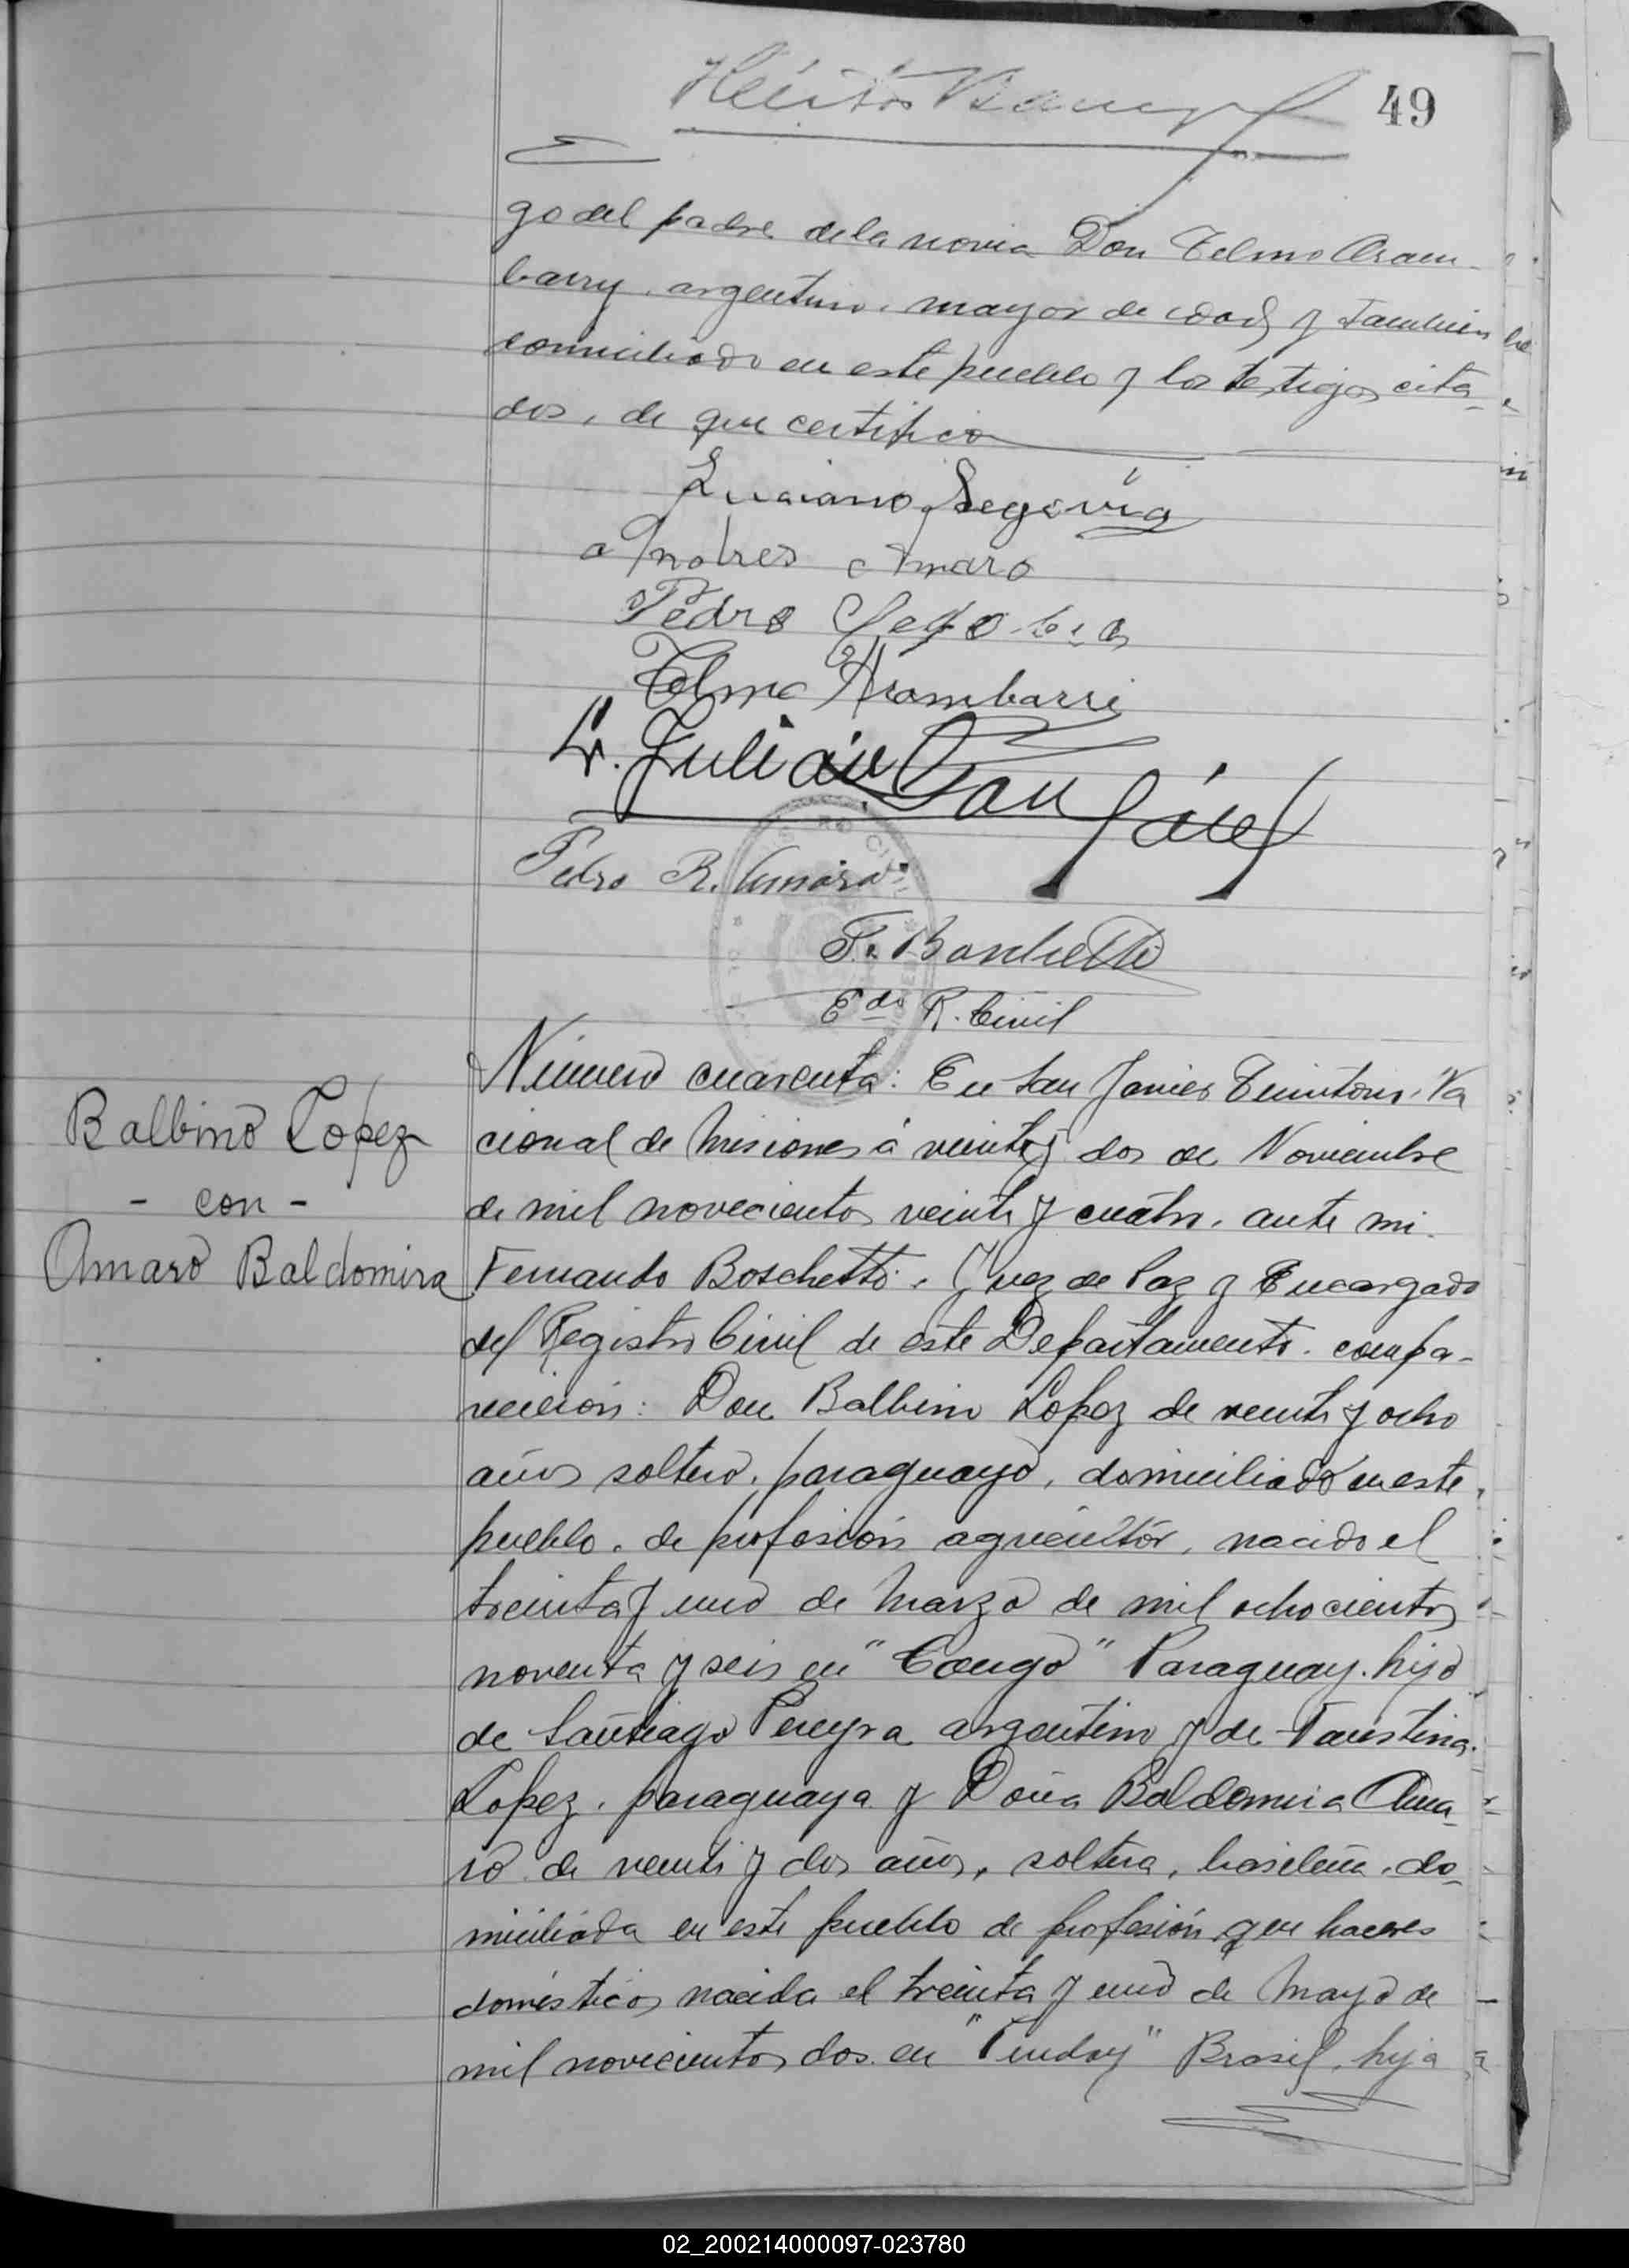 49
go del padre de la novia Don Telmo Aram-
barry, argentino, mayor de edad y tambien
domiciliado en este pueblo y los testigos cita-
dos, de que certifico
Luciano Segovia
Andres Amaro
Pedro Segobia
Telmo Arambarri
L. Julián
Pedro R. Amaro
F. Boschetti
Edo R. Civil
Balbino Lopez
- con -
Amaro Baldomira
Número cuarenta: En San Javier Territorio Na
cional de Misiones á veinte y dos de Noviembre
de mil novecientos veinte y cuatro, ante mi.
Fernando Boschetti, Juez de Paz y Encargado
del Registro Civil de este Departamento. compa-
recieron: Don Balbino Lopez de veinte y ocho
años soltero, paraguayo, domiciliado en este
pueblo, de profesión agricultór, nacido el
treinta y uno de Marzo de mil ochocientos
noventa y seis en "Cango" Paraguay. hijo
de Santiago Pereyra argentino y de Faustina
Lopez, paraguaya y Doña Baldomira Ama-
ro de veinte y dos años, soltera, brasileña, do-
miciliada en este pueblo de profesión que haceres
domésticos nacida el treinta y uno de Mayo de
mil novecientos dos en Brasil, hija
02_200214000097-023780